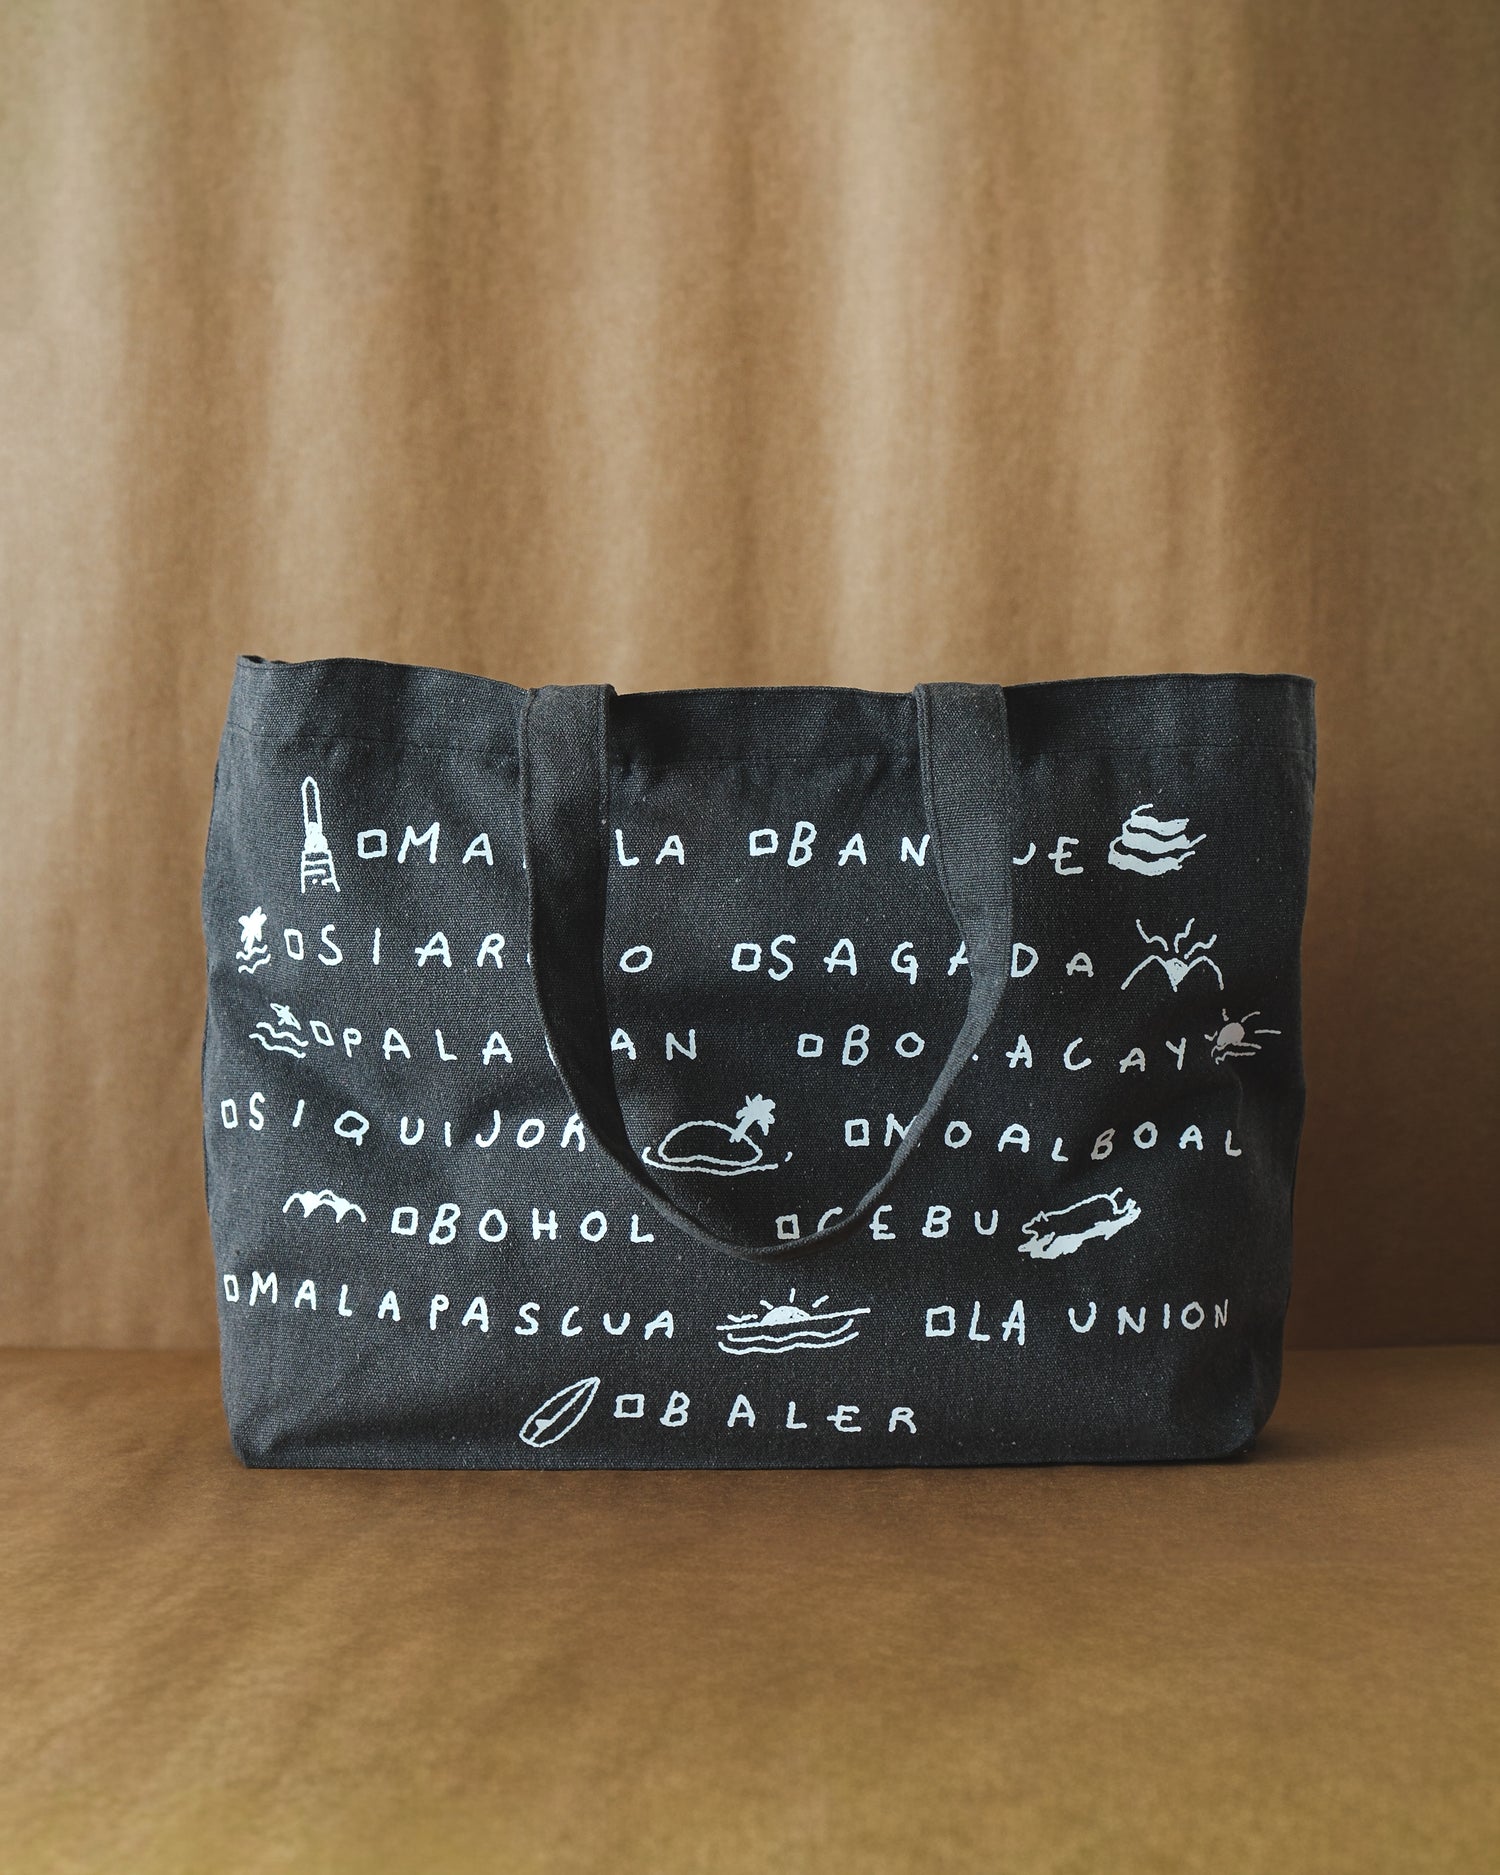 □MANILA □BANAUE
□SIARGAO □SAGADA
□PALAWAN □BORACAY
□SIQUIJOR □MOALBOAL
□BOHOL □CEBU
□MALAPASCUA □LA UNION
□BALER